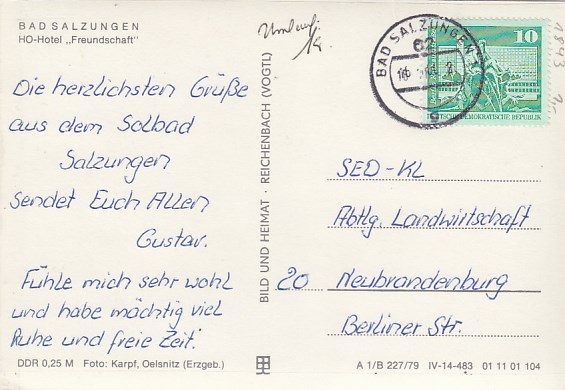 BAD SALZUNGEN
HO-Hotel „Freundschaft"
Die herzlichsten Grüße
aus dem Solbad
Salzungen
sendet Euch Allen
Gustav.
Fühle mich sehr wohl
und habe mächtig viel
Ruhe und freie Zeit.
DDR 0,25 M Foto: Karpf, Oelsnitz (Erzgeb.)
BILD UND HEIMAT · REICHENBACH (VOGTL)
Umlauf
BAD SALZUNGEN 1
62
g
10
DEUTSCHE DEMOKRATISCHE REPUBLIK
1843
SED-KL
Abtlg. Landwirtschaft
20 Neubrandenburg
Berliner Str.
A 1/B 227/79 IV-14-483 01 11 01 104